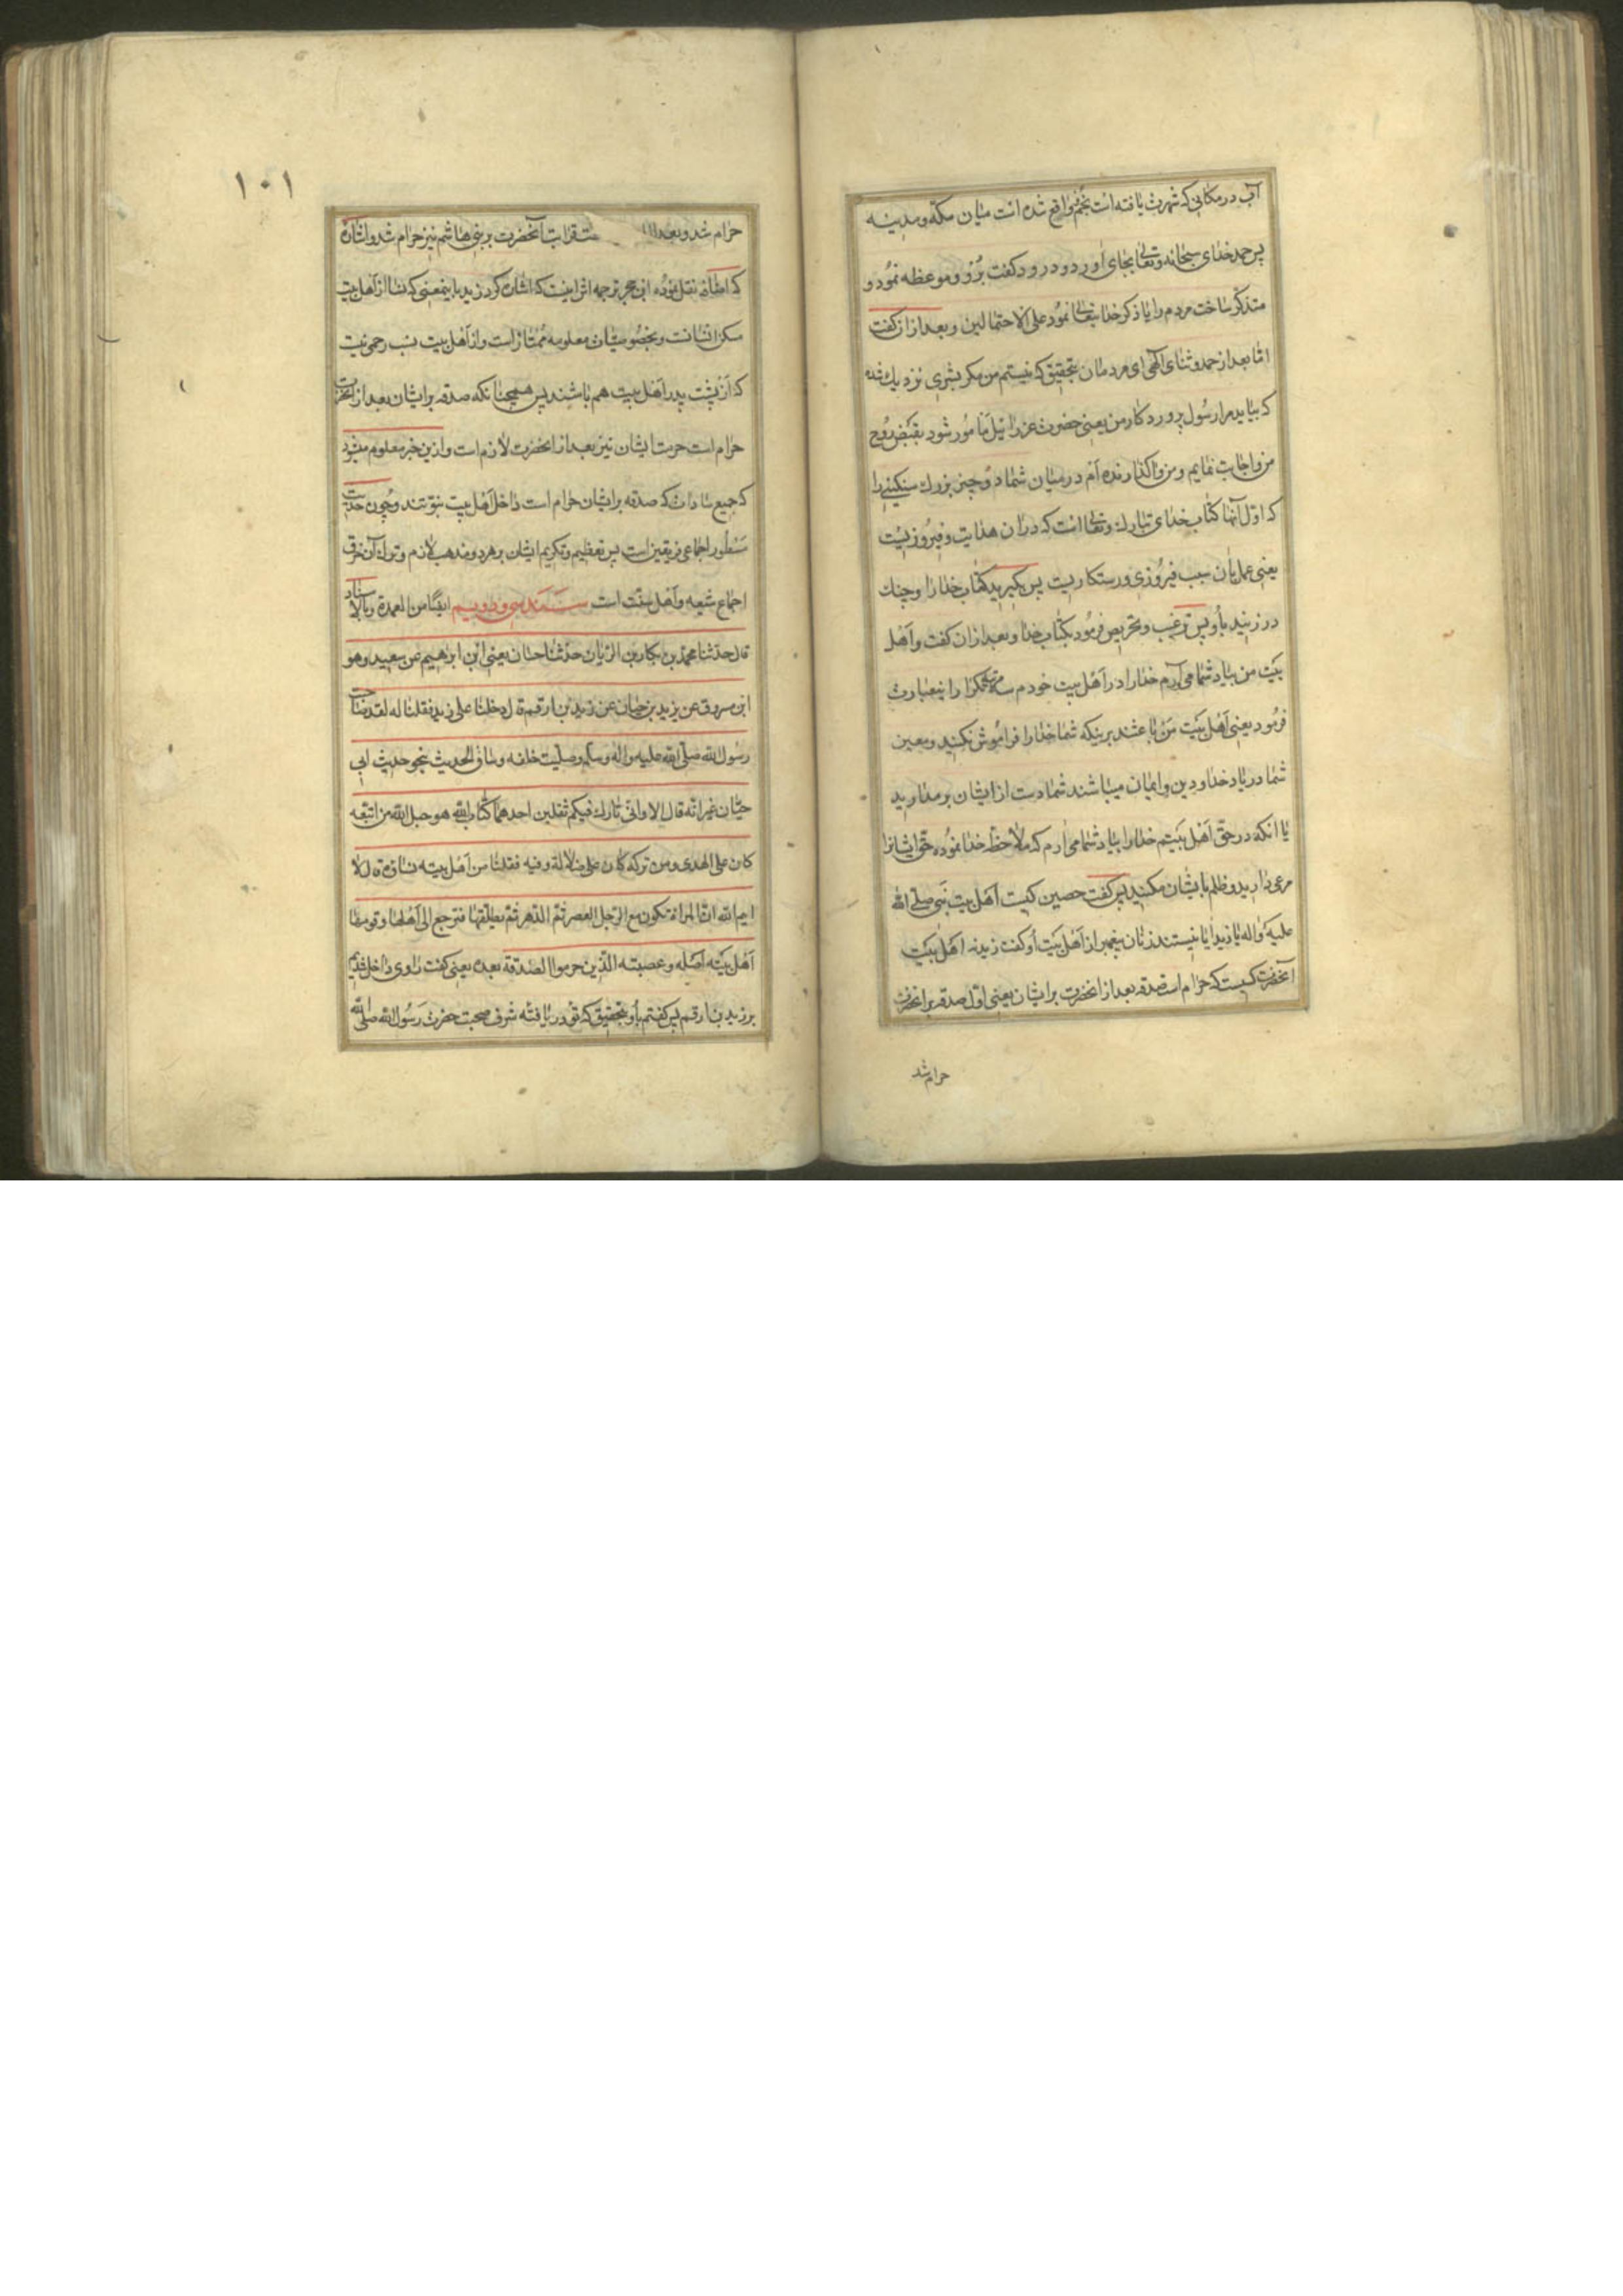 آب در مکانی که شهرت یافته است بخم واقع شده است میان مکه و مدینه
پس حمد خدای سبحانه و تعالی بجای آورد و درود گفت برو و موعظه نمود و
متذکر ساخت مردم را یا ذکر خدا تعالی نمود علی الاحتمالین و بعد از آن گفت
امّا بعد از حمد و ثنای الهی ای مردمان بتحقیق که نیستم من مکر بشری نزدیك شده
که بیاید مرا رسول پروردکار من یعنی حضرت عزرائیل مامور شود بقبض روح
من و اجابت نمایم و من واکذارنده ام در میان شما دو چیز بزرك سنکینی را
که اوّل آنها کتاب خدای تبارك و تعالی است که در آن هدایت و فیروزیست
یعنی عمل بآن سبب فیروزی و رستکاریست پس بکیرید کتاب خدا را و چنك
در زنید باو پس ترغیب و تحریص فرمود بکتاب خدا و بعد از آن کفت و اهل
بیت من بیاد شما می آرم خدا را در اهل بیت خودم سه مرتبه مکرر اینعبارت
فرمود یعنی اهل بیت من باعثند برینکه شما خدا را فراموش نکنید و معین
شما در یاد خدا و دین و ایمان میباشند شما دست از ایشان برمدارید
یا انکه در حق اهل بیتم خدا را بیاد شما می ارم که ملاحظه خدا نموده حق ایشانرا
مرعی دارید و ظلم بایشان مکنید پس کفت حصین کیست اهل بیت نبی صلی الله
علیه و اله یا زید ایا نیستند زنان پیغمبر از اهل بیت او کفت زید نه اهل بیت
آنحضرت کیست که حرام است صدقه بعد از انحضرت بر ایشان یعنی اول صدقه بر انحضرت
حرام شد
۱۰۱
حرام شد و بعد قرابت آنحضرت بر بنی هاشم نیز حرام شد و اشاره
که نقل نموده ابن حجر ترجمه اش اینست که اشاره کرد زید باینمعنی که نسا از اهل بیت
سکن انسانست و بخصوصیتان معلومه ممتاز است و از اهل بیت نسب رحمی نیست
که از پشت پدر اهل بیت هم باشند پس همچنانکه صدقه بر ایشان بعد از انحضرت
حرام است حرمت ایشان نیز بعد از انحضرت لازم است و ازین خبر معلوم میشود
که جمیع سادات که صدقه بر ایشان حرام است داخل اهل بیت نبوتند و چون حدیث
مسطور اجماعی فریقین است پس تعظیم و تکریم ایشان بر هر دو مذهب لازم و ترك آن خرق
اجماع شیعه و اهل سنّت است سند سی و دویم ایضًا من العمدة و بالاسناد
قال حدثنا محمد بن بکار بن الریان حدثنا حسان یعنی ابن ابرهیم عن سعید و هو
ابن مسروق عن یزید بن حیان عن زید بن ارقم قال دخلنا علی زید فقلنا له لقد صاحبت
رسول الله صلی الله علیه واله وسلم وصلیت خلفه وساق الحدیث بنحو حدیث ابی
حیّان غیر انّه قال الا وانی تارك فیکم ثقلین احدهما کتاب الله هو حبل الله من اتبعه
کان علی الهدی ومن ترکه کان علی ضلالة وفیه فقلنا من اهل بیته نساؤه قال لا
ایم الله ان المراة تکون مع الرجل العصر ثم الدهر ثم یطلقها فترجع الی اهلها وقومها
اهل بیته اصله وعصبته الذین حرموا الصدقة بعده یعنی کفت راوی داخل شدیم
بر زید بن ارقم پس کفتم باو بتحقیق که تو دریافته شرف صحبت حضرت رسول الله صلی الله